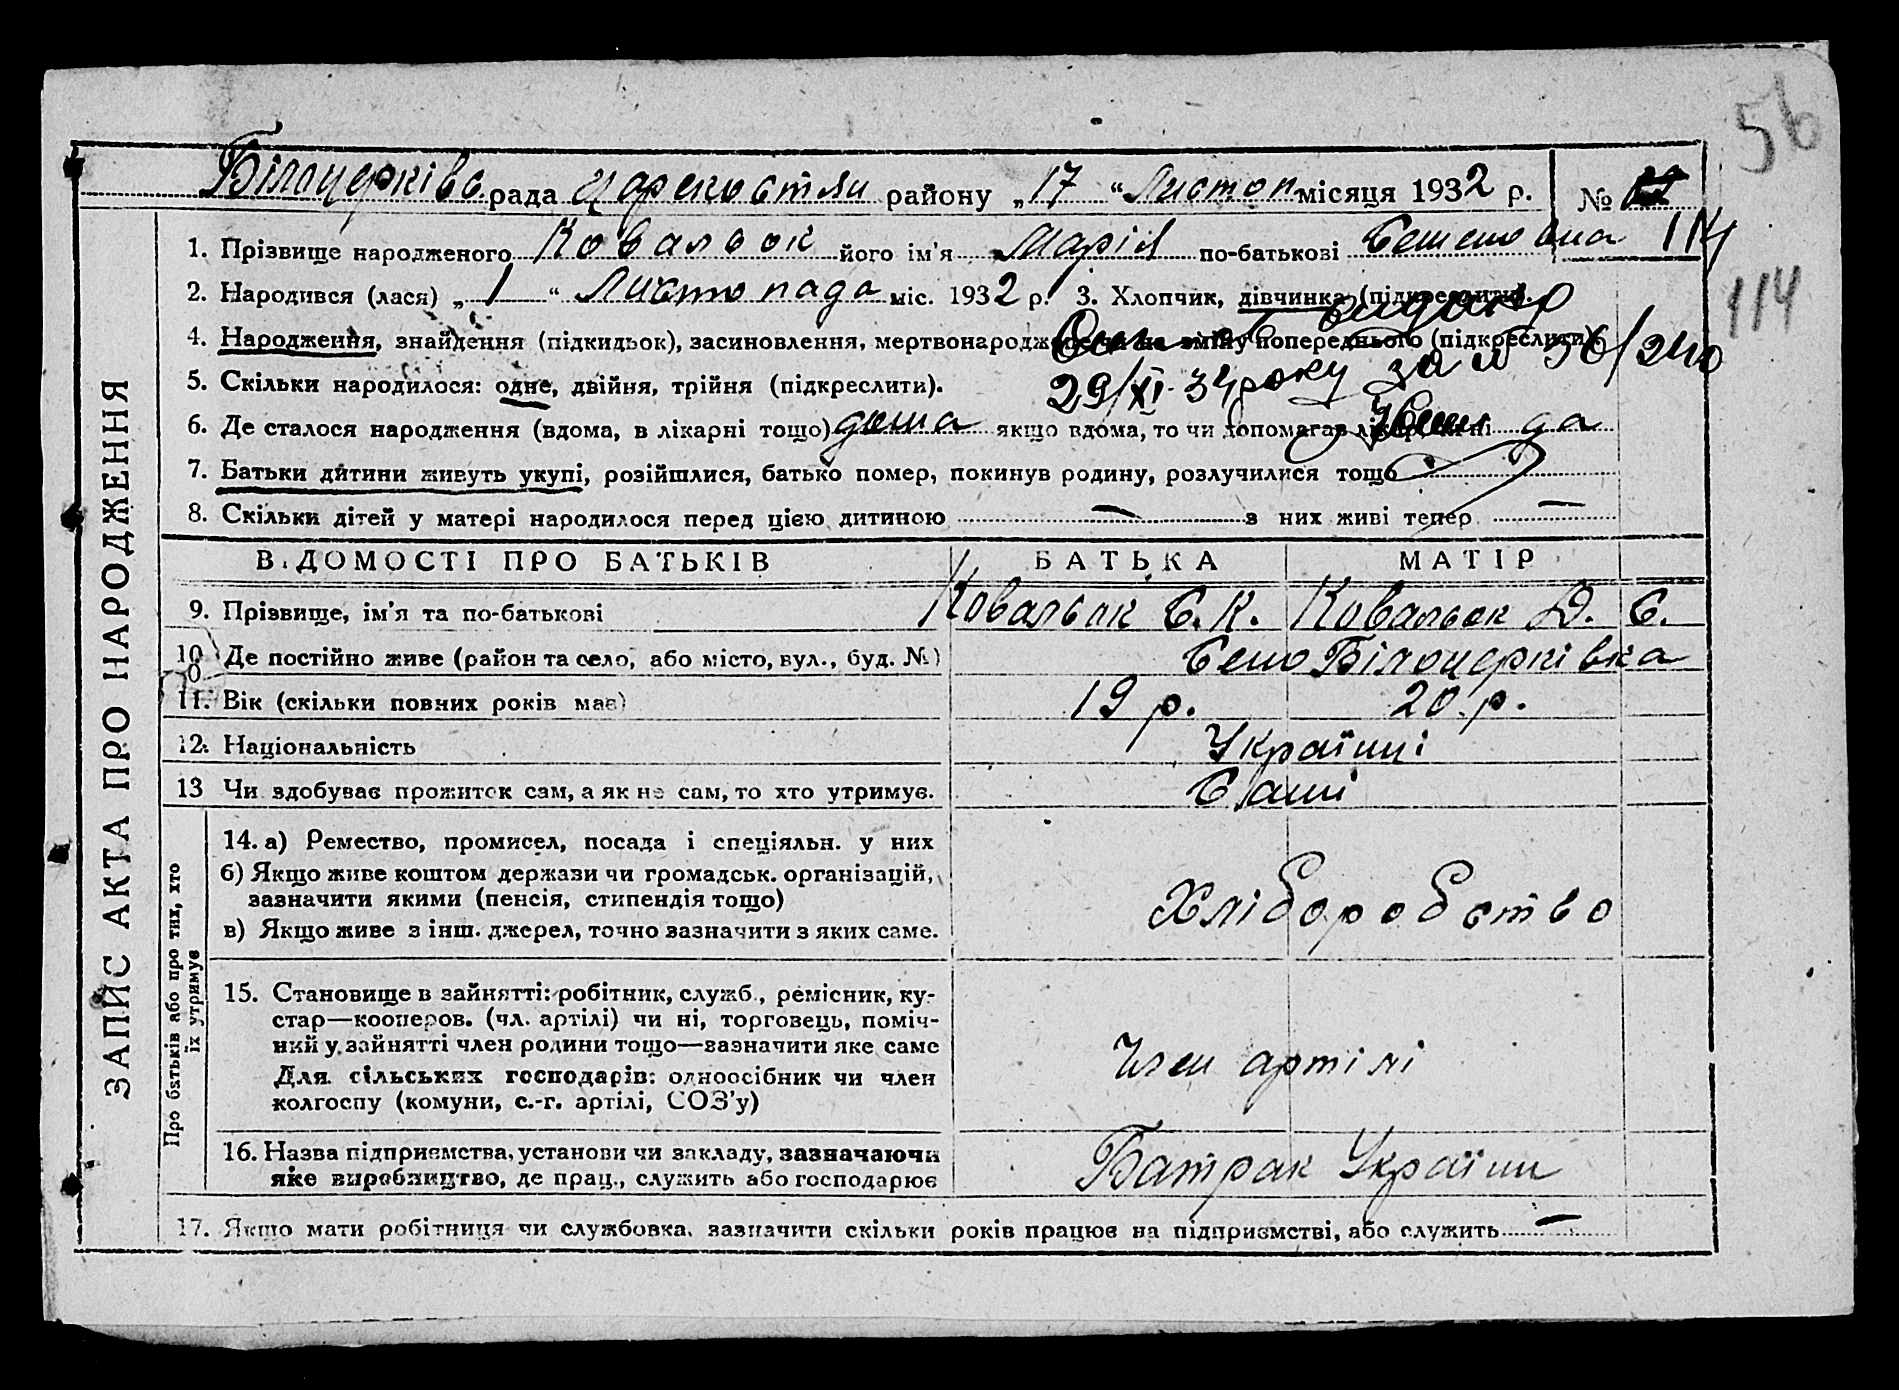 56
Білоцерківс. рада Царекостян району „17“ Листоп місяця 1932 р. №
114
1. Прізвище народженого Ковальок його ім'я Марія по-батькові
114
2. Народився (лася) „1“ Листопада міс. 1932 р. 3. Хлопчик, дівчинка (підкреслити).
видано
4. Народження, знайдення (підкидьок), засиновлення, мертвонароджене чи на зміну попереднього (підкреслити)
29/XI 34 року за № 56/240
5. Скільки народилося: одне, двійня, трійня (підкреслити).
6. Де сталося народження (вдома, в лікарні тощо) дома якщо вдома, то чи допомагав лікар, чи ні да
7. Батьки дитини живуть укупі, розійшлися, батько помер, покинув родину, розлучилися тощо
8. Скільки дітей у матері народилося перед цією дитиною — з них живі тепер —
ЗАПИС АКТА ПРО НАРОДЖЕННЯ
ВІДОМОСТІ ПРО БАТЬКІВ БАТЬКА МАТІР
9. Прізвище, ім'я та по-батькові Ковальок С. К. Ковальок Д. С.
10. Де постійно живе (район та село, або місто, вул., буд. №) Село Білоцерківка
11. Вік (скільки повних років має) 19 р. 20 р.
12. Національність Українці
13 Чи здобуває прожиток сам, а як не сам, то хто утримує. Сами
Про батьків або про тих, хто їх утримує
14. а) Ремество, промисел, посада і спеціяльн. у них
б) Якщо живе коштом держави чи громадськ. організацій,
зазначити якими (пенсія, стипендія тощо) Хліборобство
в) Якщо живе з інш. джерел, точно зазначити з яких саме.
15. Становище в зайнятті: робітник, служб., ремісник, ку-
стар—кооперов. (чл. артілі) чи ні, торговець, поміч-
ний у зайнятті член родини тощо—зазначити яке саме
Член артілі
Для сільських господарів: одноосібник чи член
колгоспу (комуни, с.-г. артілі, СОЗ'у)
16. Назва підприємства, установи чи закладу, зазначаючи
яке виробництво, де прац., служить або господарює Батрак України
17. Якщо мати робітниця чи службовка, зазначити скільки років працює на підприємстві, або служить —